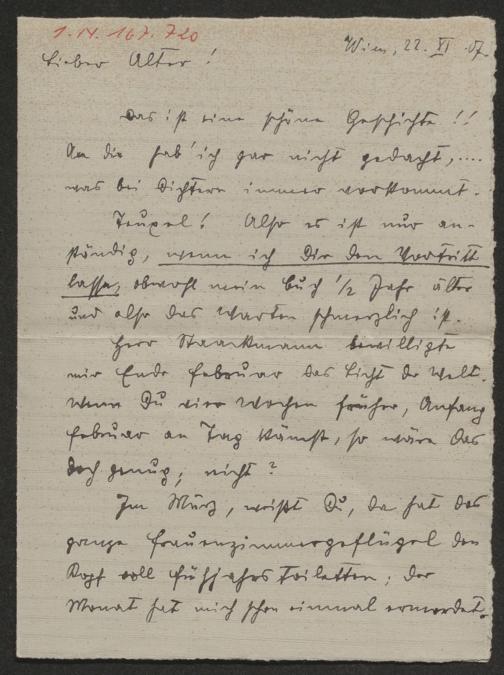 I.N. 167.720
Wien, 22. XI. 07.
Lieber Alter!
Das ist eine schöne Geschichte!!
An die hab' ich gar nicht gedacht, ....
was bei Dichtern immer vorkommt.
Teuxel! Also es ist nur an-
ständig, wenn ich Dir den Vortritt
lasse, obwohl mein Buch 1/2 Jahr älter
und also das Warten schmerzlich ist.
Herr Staackmann bewilligte
mir Ende Februar das Licht der Welt.
Wenn Du vier Wochen früher, Anfang
Februar an Tag kämst, so wäre das
doch genug, nicht?
Im März, weißt Du, da hat das
ganze Frauenzimmergeflügel den
Kopf voll Frühjahrstoiletten; der
Monat hat mich schon einmal ermordet.